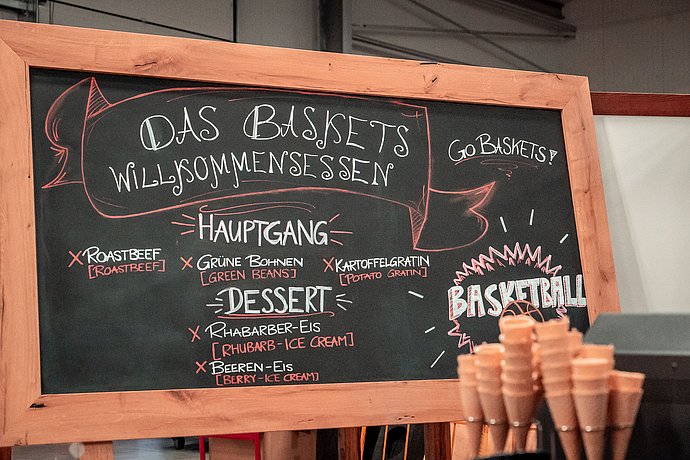 DAS BASKETS
WILLKOMMENSESSEN
GO BASKETS!
HAUPTGANG
x ROASTBEEF
[ROASTBEEF]
x GRÜNE BOHNEN
[GREEN BEANS]
x KARTOFFELGRATIN
[POTATO GRATIN]
DESSERT
x RHABARBER-EIS
[RHUBARB-ICE CREAM]
x BEEREN-EIS
[BERRY-ICE CREAM]
BASKETBALL